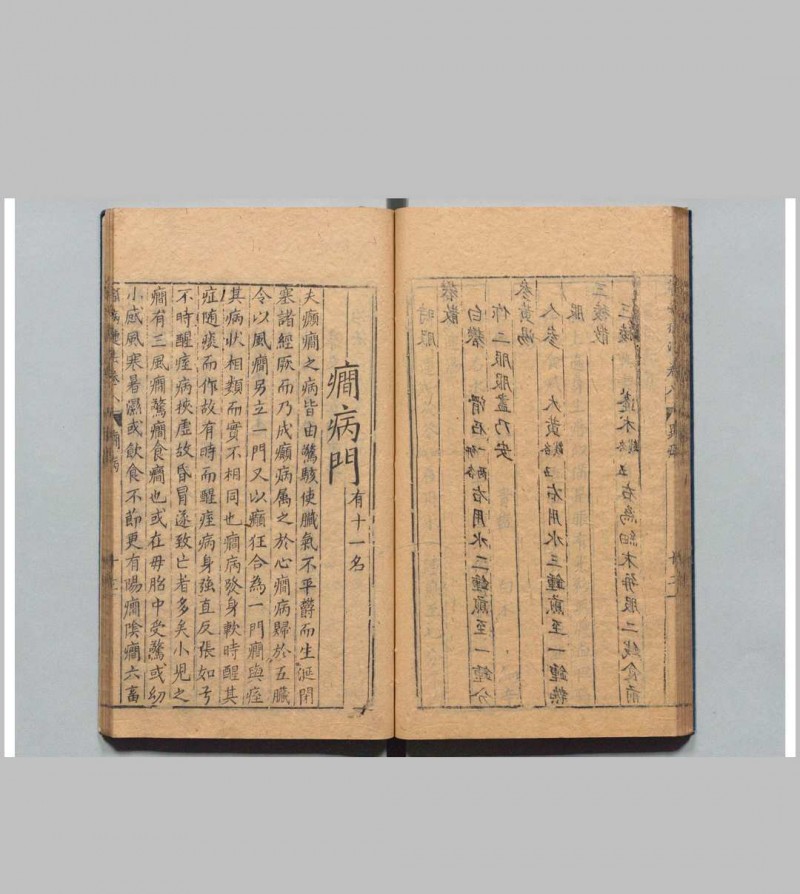 一時服
礬散
白礬 滑石 各一兩 右用水二鐘煎至一鐘分
作二服服盡乃安
參黃湯
人參 大黃 各五錢 右用水三鐘煎至一鐘熱
服
三稜散
三稜 蓬朮 各五錢 右為細末每服二錢食前
癇病門 有十一名
夫癲癇之病皆由驚駭使臟氣不平鬱而生涎閉
塞諸經厥而乃成癲病屬之於心癇病歸於五臟
令以風癇另立一門又以癲狂合為一門癇與痓
其病狀相類而實不相同也癇病發身軟時醒其
症隨痰而作故有時而醒痓病身強直反張如弓
不時醒痓病挾虛故昏冒遂致亡者多矣小兒之
癇有三風癇驚癇食癇也或在母胎中受驚或幼
小感風寒暑濕或飲食不節更有陽癇陰癇六畜
卷八 癇病